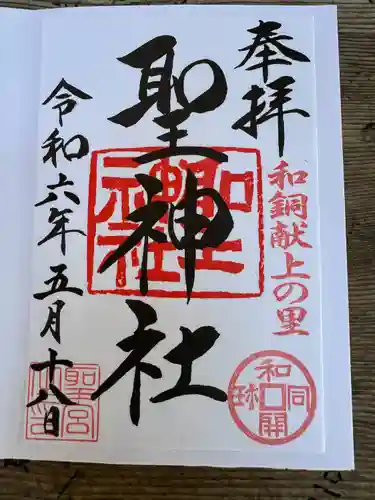 奉拝
和銅献上の里
聖神社
令和六年五月十八日
聖神社
和同開珎